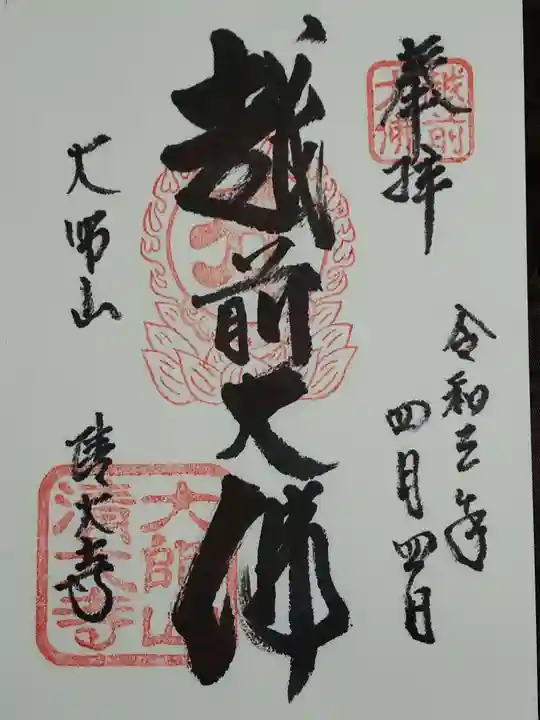 奉拝
越前
大佛
令和三年
四月四日
越前大佛
大師山
清大寺
大師山
清大寺